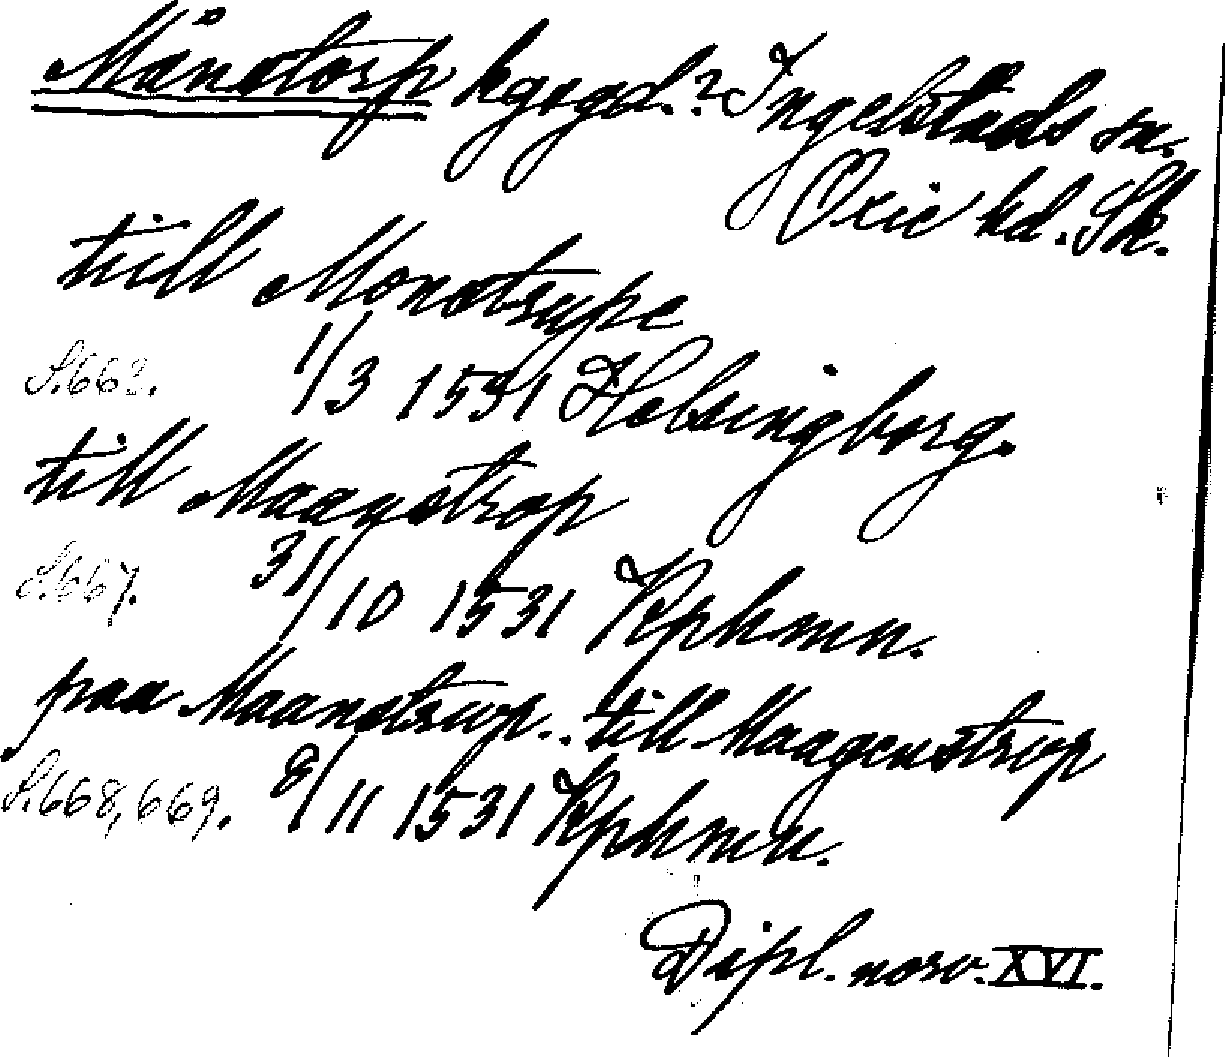 Månstorp kgsgd.? Ingelstads sn.
Oxie hd. Sk.
till Monstrupe
S.662. 1/3 1531 Helsingborg.
till Maagstrop
S.667. 31/10 1531 Kphmn.
paa Maanstrup.. till Maagenstrup
S.668,669. 8/11 1531 Kphmn.
Dipl. norv. XVI.